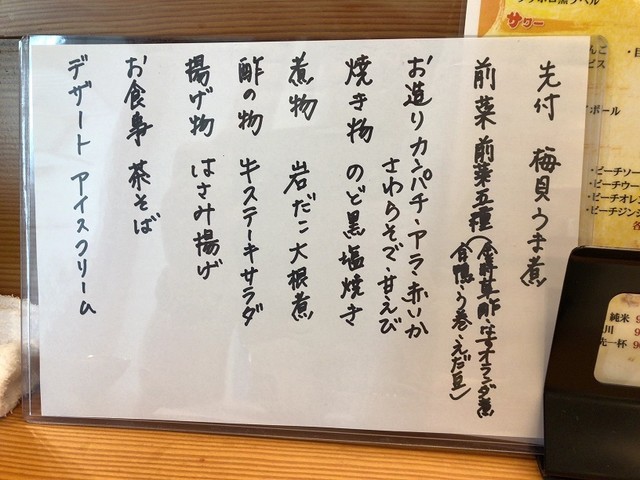 先付 梅貝うま煮
前菜 前菜五種(金時草酢・なすオランダ煮
合鴨・う巻・えだ豆)
お造り カンパチ・アラ・赤いか
さわらそで・甘えび
焼き物 のど黒塩焼き
煮物 岩だこ大根煮
酢の物 牛ステーキサラダ
揚げ物 はさみ揚げ
お食事 茶そば
デザート アイスクリーム
サワー
ピーチソー
ピーチウー
ピーチオレ
ピーチジン
純米